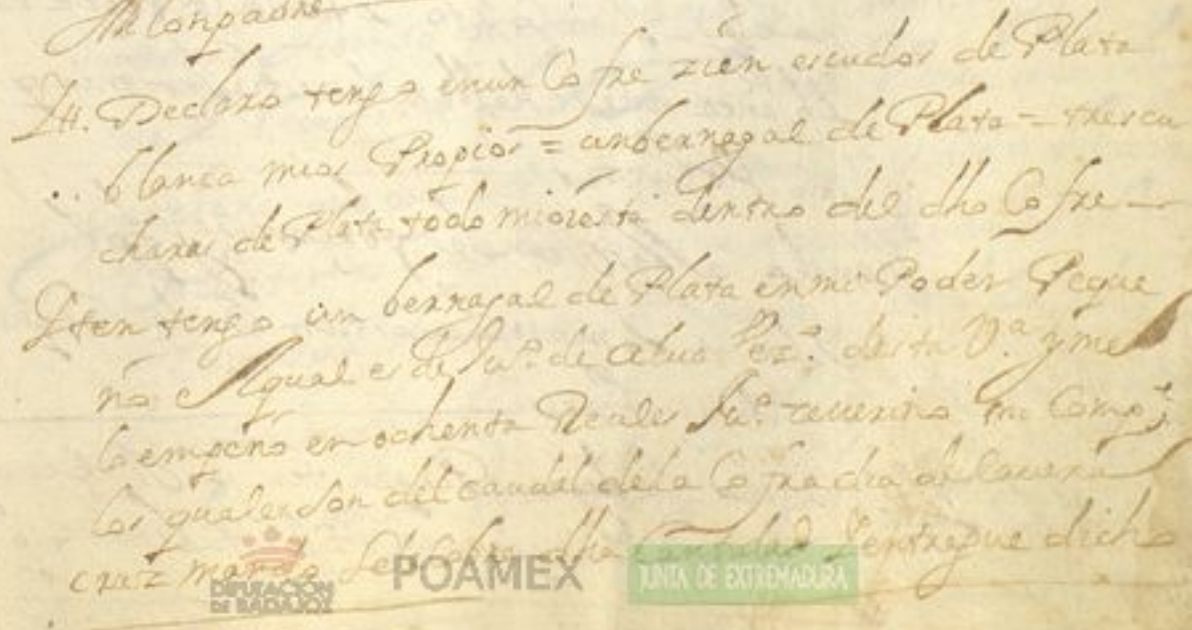 conpadre
Yt. Declaro tengo en un Cofre zien escudos de Plata
blanca mios Propios = un bernegal de Plata = tres cu
charas de Plata todo mio està dentro del dho Cofre
Yten tengo un bernagal de Plata en mi Poder Peque
ño el qual es de Ju.º de Vez.º desta V.ª y me
lo empeño en ochenta Reales Ju.º mi Comp.e
los quales son del caudal de la Cofradia de la vera
cruz mando Se Cobre dha Cantidad Y entregue dicho
DIPUTACIÓN
DE BADAJOZ
POAMEX
JUNTA DE EXTREMADURA